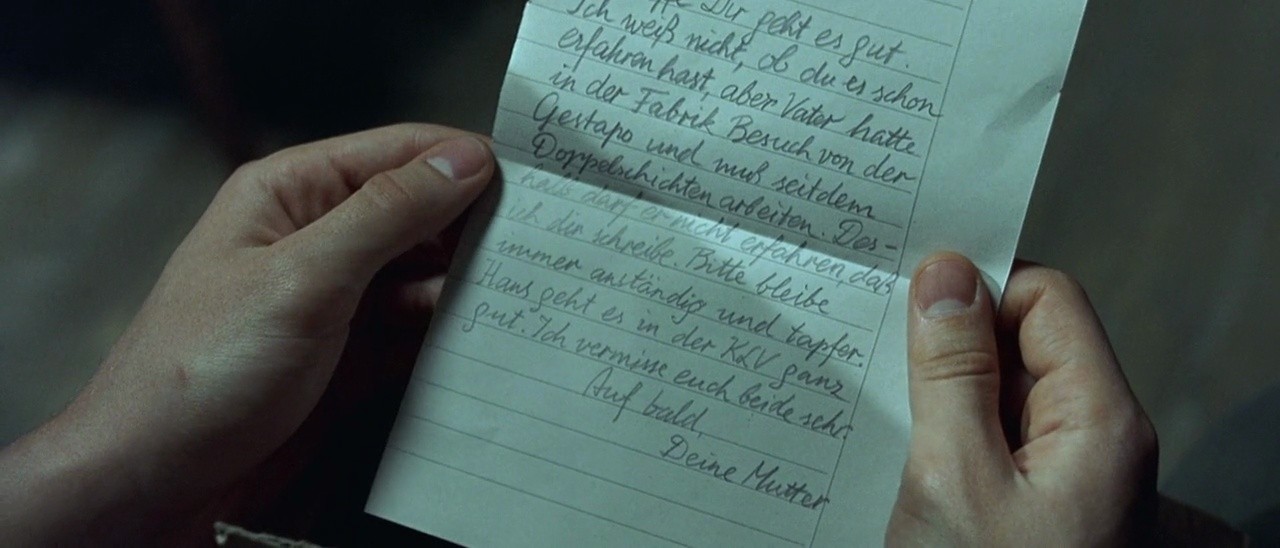 Dir geht es gut.
Ich weiß nicht, ob du es schon
erfahren hast, aber Vater hatte
in der Fabrik Besuch von der
Gestapo und muß seitdem
Doppelschichten arbeiten. Des-
halb darf er nicht erfahren, daß
ich dir schreibe. Bitte bleibe
immer anständig und tapfer.
Hans geht es in der KLV ganz
gut. Ich vermisse euch beide sehr.
Auf bald,
Deine Mutter